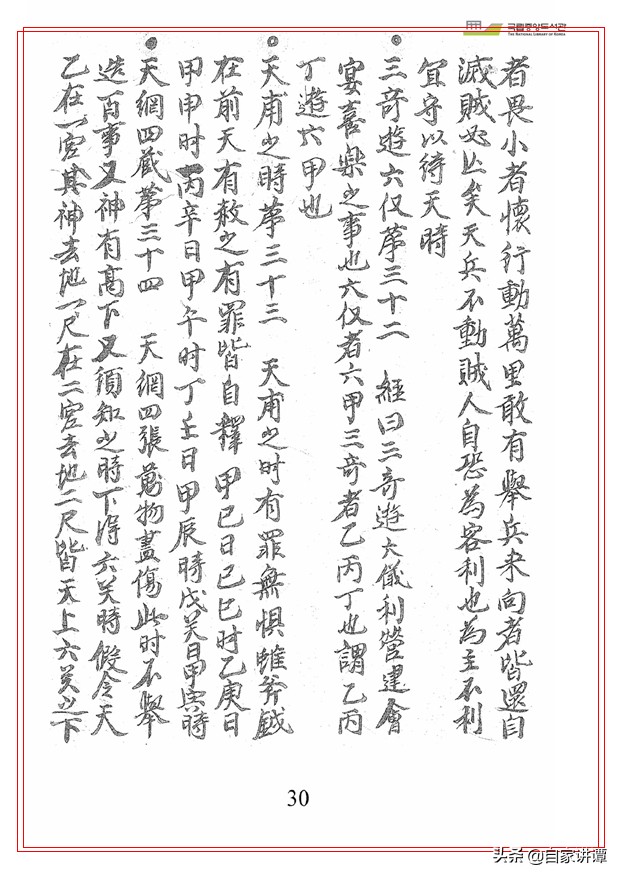 국립중앙도서관
THE NATIONAL LIBRARY OF KOREA
者畏小者懷行動萬里敢有舉兵来向者皆還自
滅賊必亡矣天兵不動賊人自恐為客利也為主不利
宜守以待天時
三奇遊六仪苐三十二 經曰三奇遊六儀利營建會
宴喜樂之事也六仪者六甲三奇者乙丙丁也謂乙丙
丁遊六甲也
天甫之時苐三十三 天甫之时有罪無惧雖斧鉞
在前天有赦之有罪皆自釋 甲己日己巳时乙庚日
甲申时丙辛日甲午时丁壬日甲辰時戊癸日甲寅時
天網四蔵苐三十四 天網四張萬物盡傷此时不舉
造百事又神有高下又須知之時下得六癸時假令天
乙在一宮其神去地一尺在二宮去地二尺皆天上六癸之下
30
头条 @自家讲谭